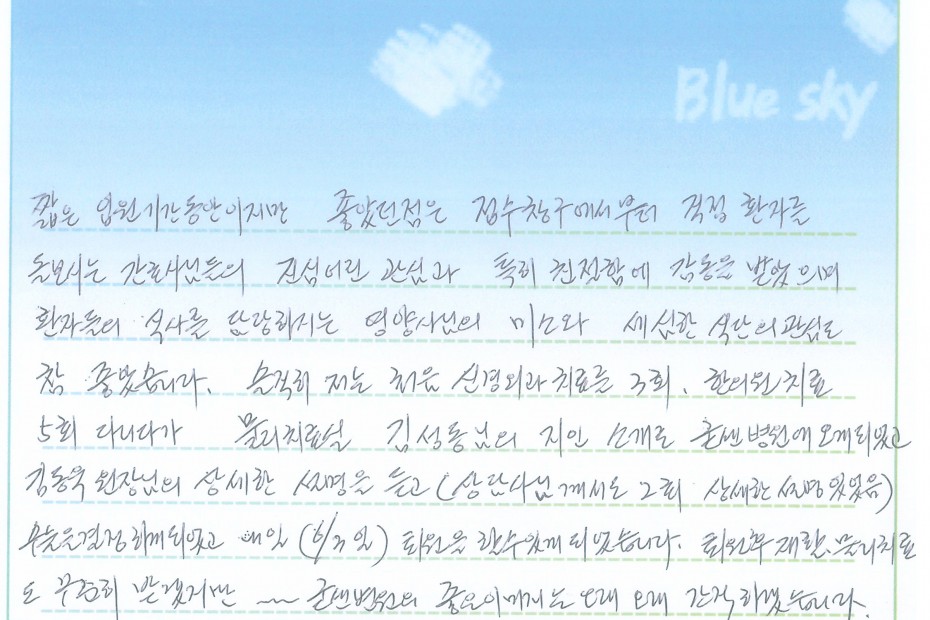 Blue sky
짧은 입원기간동안이지만 좋았던점은 접수창구에서부터 걱정 환자를
돌보시는 간호사님들의 진심어린 관심과 특히 친절함에 감동을 받았으며
환자들의 식사를 담당하시는 영양사님의 미소와 세심한 식단의 관심도
참 좋았습니다. 솔직히 저는 처음 신경외과 치료를 3회, 한의원 치료
5회 다니다가 물리치료실 김성동님의 지인 소개로 굳센병원에 오게되었고
김동욱 원장님의 상세한 설명을 듣고 (상담사님께서도 2회 상세한 설명있었음)
수술을결정하게되었고 내일 (6/3일) 퇴원을 할수있게 되었습니다. 퇴원후 재활, 물리치료
도 꾸준히 받겠지만 ~~ 굳센병원의 좋은이미지는 오래 오래 간직하겠습니다.